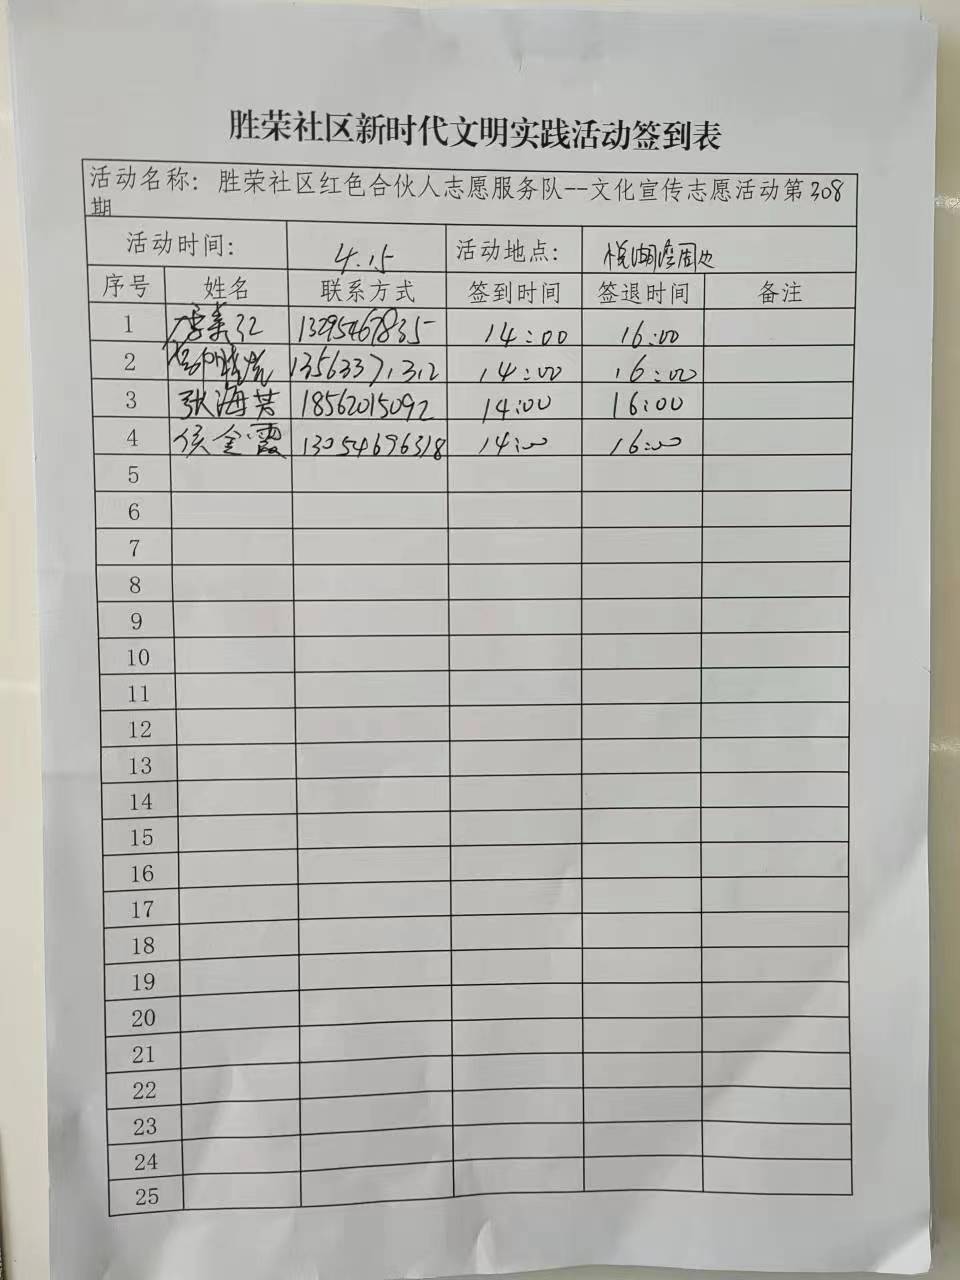 胜荣社区新时代文明实践活动签到表
活动名称：胜荣社区红色合伙人志愿服务队--文化宣传志愿活动第308
期
活动时间： 4.15 活动地点： 悦湖湾周边
序号 姓名 联系方式 签到时间 签退时间 备注
1 13295467835 14:00 16:00
2 13563371312 14:00 16:00
3 张海芳 18562015092 14:00 16:00
4 侯金霞 13054696318 14:00 16:00
5
6
7
8
9
10
11
12
13
14
15
16
17
18
19
20
21
22
23
24
25